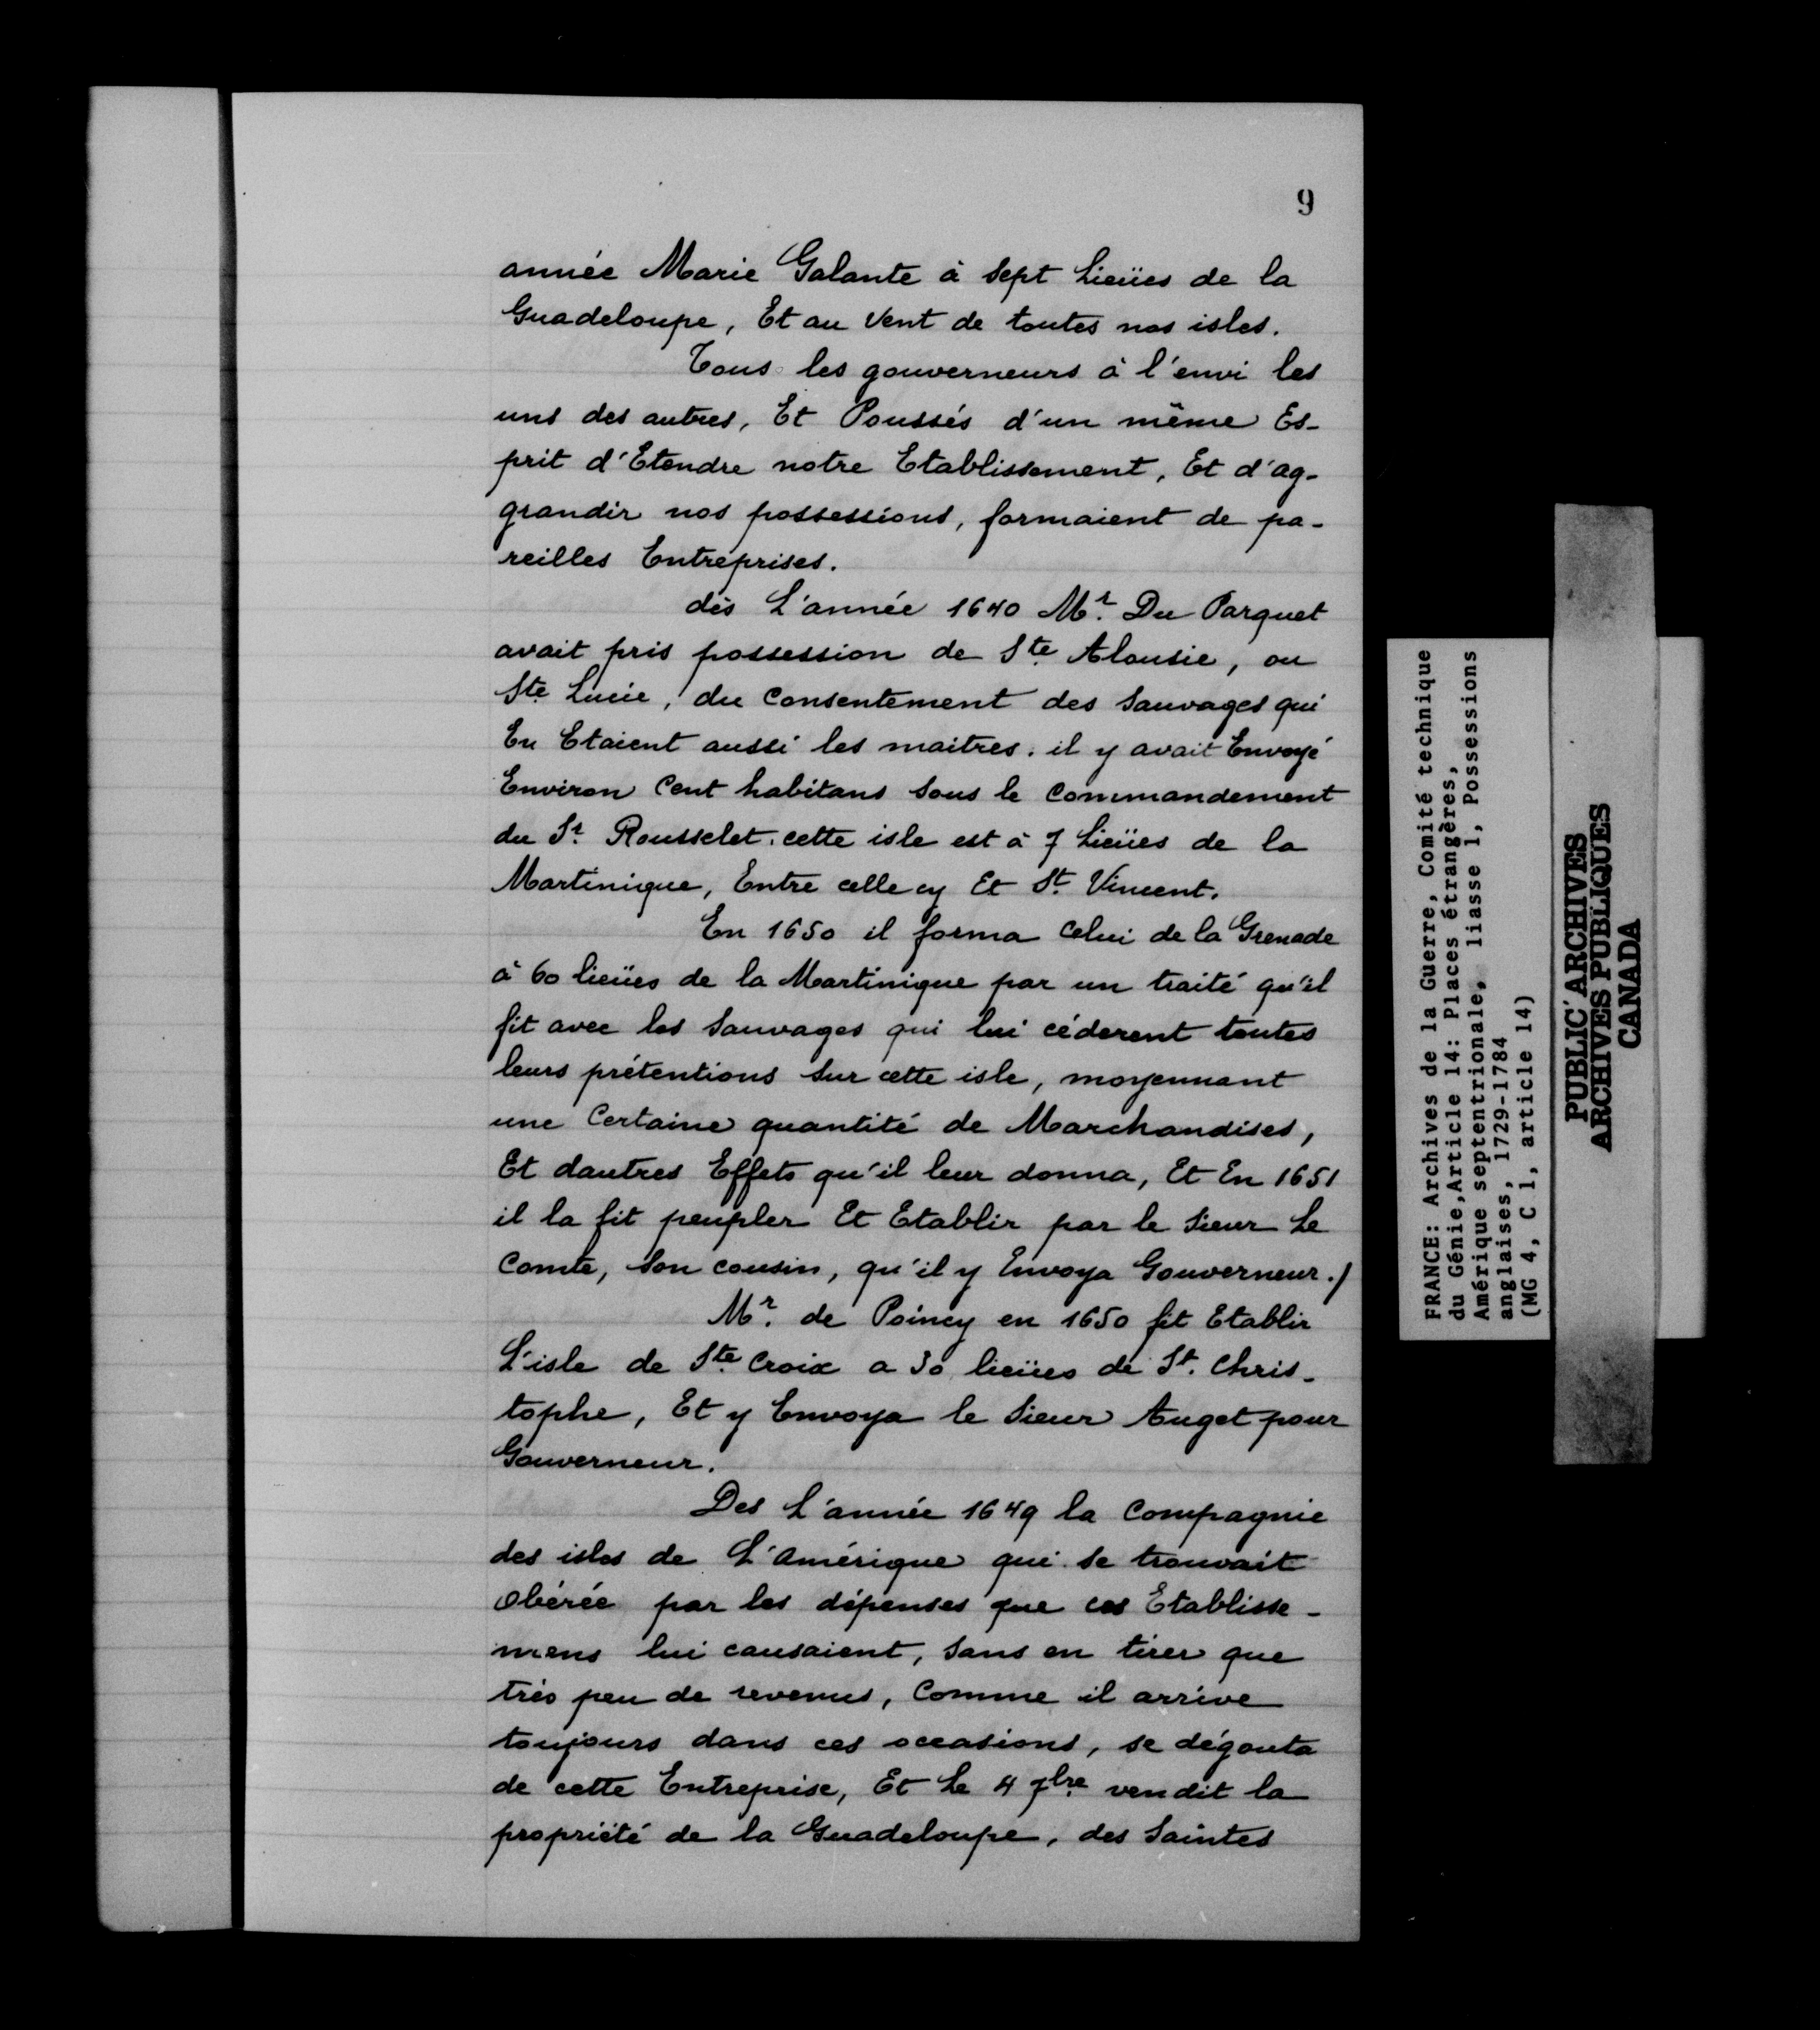 9
année Marie Galante à Sept Lieües de la
Guadeloupe, Et au Vent de toutes nos isles.
Tous les gouverneurs à l'envi les
uns des autres, Et Poussés d'un même Es-
prit d'Etendre notre Etablissement, Et d'ag-
grandir nos possessions, formaient de pa-
reilles Entreprises.
dès L'année 1640 Mr. Du Parquet
avait pris possession de Ste. Alousie, ou
Ste. Lucie, du Consentement des Sauvages qui
En Etaient aussi les maitres. il y avait Envoyé
Environ Cent habitans Sous le Commandement
du Sr. Rousselet. cette isle est à 7 Lieües de la
Martinique, Entre celle cy Et St. Vincent.
En 1650 il forma Celui de la Grenade
à 60 lieües de la Martinique par un traité qu'il
fit avec les Sauvages qui lui céderent toutes
leurs prétentions Sur cette isle, moyennant
une Certaine quantité de Marchandises,
Et dautres Effets qu'il leur donna, Et En 1651
il la fit peupler Et Etablir par le Sieur Le
Comte, Son cousin, qu'il y Envoya Gouverneur./
Mr. de Poincy en 1650 fit Etablir
L'isle de Ste. Croix a 30 lieües de St. Chris-
tophe, Et y Envoya le Sieur Auget pour
Gouverneur.
Des L'année 1649 la Compagnie
des isles de L'Amérique qui se trouvait
Obérée par les dépenses que ces Etablisse-
mens lui causaient, Sans en tirer que
très peu de revenus, Comme il arrive
toujours dans ces occasions, se dégouta
de cette Entreprise, Et Le 4 7bre. vendit la
propriété de la Guadeloupe, des Saintes
FRANCE: Archives de la Guerre, Comité technique
du Génie,Article 14: Places étrangères,
Amérique septentrionale, liasse 1, Possessions
anglaises, 1729-1784
(MG 4, C 1, article 14)
PUBLIC ARCHIVES
ARCHIVES PUBLIQUES
CANADA